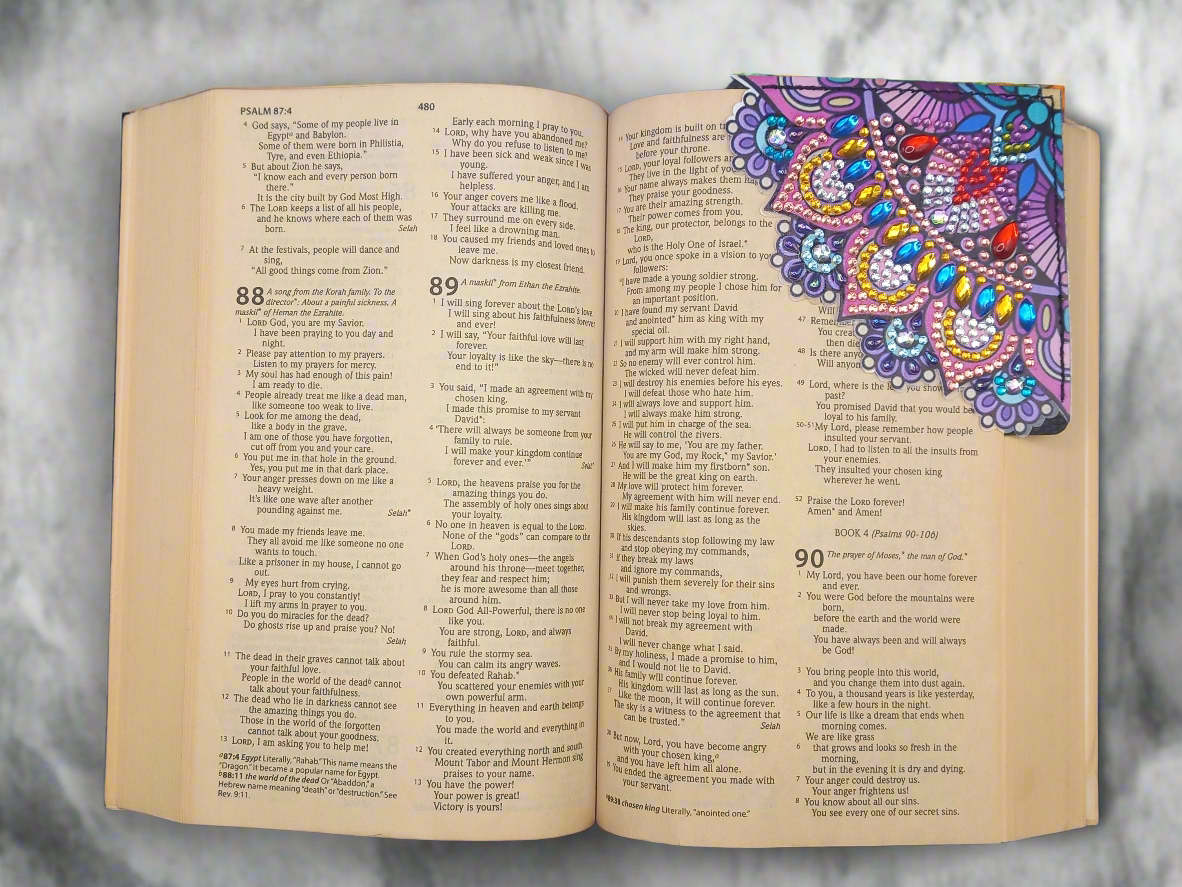 PSALM 87:4
480
4 God says, “Some of my people live in
Egyptᵃ and Babylon.
Some of them were born in Philistia,
Tyre, and even Ethiopia.”
5 But about Zion he says,
“I know each and every person born
there.”
It is the city built by God Most High.
6 The LORD keeps a list of all his people,
and he knows where each of them was
born. Selah
7 At the festivals, people will dance and
sing,
“All good things come from Zion.”
88 A song from the Korah family. To the
director*: About a painful sickness. A
maskil* of Heman the Ezrahite.
1 LORD God, you are my Savior.
I have been praying to you day and
night.
2 Please pay attention to my prayers.
Listen to my prayers for mercy.
3 My soul has had enough of this pain!
I am ready to die.
4 People already treat me like a dead man,
like someone too weak to live.
5 Look for me among the dead,
like a body in the grave.
I am one of those you have forgotten,
cut off from you and your care.
6 You put me in that hole in the ground.
Yes, you put me in that dark place.
7 Your anger presses down on me like a
heavy weight.
It's like one wave after another
pounding against me. Selah*
8 You made my friends leave me.
They all avoid me like someone no one
wants to touch.
Like a prisoner in my house, I cannot go
out.
9 My eyes hurt from crying.
LORD, I pray to you constantly!
I lift my arms in prayer to you.
10 Do you do miracles for the dead?
Do ghosts rise up and praise you? No!
Selah
11 The dead in their graves cannot talk about
your faithful love.
People in the world of the deadᵇ cannot
talk about your faithfulness.
12 The dead who lie in darkness cannot see
the amazing things you do.
Those in the world of the forgotten
cannot talk about your goodness.
13 LORD, I am asking you to help me!
ᵃ87:4 Egypt Literally, “Rahab.” This name means the
“Dragon.” It became a popular name for Egypt.
ᵇ88:11 the world of the dead Or “Abaddon,” a
Hebrew name meaning “death” or “destruction.” See
Rev. 9:11.
Early each morning I pray to you.
14 LORD, why have you abandoned me?
Why do you refuse to listen to me?
15 I have been sick and weak since I was
young.
I have suffered your anger, and I am
helpless.
16 Your anger covers me like a flood.
Your attacks are killing me.
17 They surround me on every side.
I feel like a drowning man.
18 You caused my friends and loved ones to
leave me.
Now darkness is my closest friend.
89 A maskil* from Ethan the Ezrahite.
1 I will sing forever about the LORD's love.
I will sing about his faithfulness forever
and ever!
2 I will say, “Your faithful love will last
forever.
Your loyalty is like the sky—there is no
end to it!”
3 You said, “I made an agreement with my
chosen king.
I made this promise to my servant
David*:
4 ‘There will always be someone from your
family to rule.
I will make your kingdom continue
forever and ever.’” Selah*
5 LORD, the heavens praise you for the
amazing things you do.
The assembly of holy ones sings about
your loyalty.
6 No one in heaven is equal to the LORD.
None of the “gods” can compare to the
LORD.
7 When God's holy ones—the angels
around his throne—meet together,
they fear and respect him;
he is more awesome than all those
around him.
8 LORD God All-Powerful, there is no one
like you.
You are strong, LORD, and always
faithful.
9 You rule the stormy sea.
You can calm its angry waves.
10 You defeated Rahab.*
You scattered your enemies with your
own powerful arm.
11 Everything in heaven and earth belongs
to you.
You made the world and everything in
it.
12 You created everything north and south
Mount Tabor and Mount Hermon sing
praises to your name.
13 You have the power!
Your power is great!
Victory is yours!
14 Your kingdom is built on
Love and faithfulness are
before your throne.
15 LORD, your loyal followers
They live in the light of
16 Your name always makes them
They praise your goodness.
17 You are their amazing strength.
Their power comes from you.
18 The king, our protector, belongs to the
LORD,
who is the Holy One of Israel.*
19 Lord, you once spoke in a vision to your
followers:
“I have made a young soldier strong.
From among my people I chose him for
an important position.
20 I have found my servant David
and anointed* him as king with my
special oil.
21 I will support him with my right hand,
and my arm will make him strong.
22 So no enemy will ever control him.
The wicked will never defeat him.
23 I will destroy his enemies before his eyes.
I will defeat those who hate him.
24 I will always love and support him.
I will always make him strong.
25 I will put him in charge of the sea.
He will control the rivers.
26 He will say to me, ‘You are my father.
You are my God, my Rock,* my Savior.’
27 And I will make him my firstborn* son.
He will be the great king on earth.
28 My love will protect him forever.
My agreement with him will never end.
29 I will make his family continue forever.
His kingdom will last as long as the
skies.
30 If his descendants stop following my law
and stop obeying my commands,
31 if they break my laws
and ignore my commands,
32 I will punish them severely for their sins
and wrongs.
33 But I will never take my love from him.
I will never stop being loyal to him.
34 I will not break my agreement with
David.
I will never change what I said.
35 By my holiness, I made a promise to him,
and I would not lie to David.
36 His family will continue forever.
His kingdom will last as long as the sun.
37 Like the moon, it will continue forever.
The sky is a witness to the agreement that
can be trusted.” Selah
38 But now, Lord, you have become angry
with your chosen king,ᵃ
and you have left him all alone.
39 You ended the agreement you made with
your servant.
ᵃ89:38 chosen king Literally, “anointed one.”
Will
47 Remember
You
then die
48 Is there
Will
49 Lord, where is the
past?
You promised David that you would be
loyal to his family.
50-51 My Lord, please remember how people
insulted your servant.
LORD, I had to listen to all the insults from
your enemies.
They insulted your chosen king
wherever he went.
52 Praise the LORD forever!
Amen* and Amen!
BOOK 4 (Psalms 90-106)
90 The prayer of Moses,* the man of God.*
1 My Lord, you have been our home forever
and ever.
2 You were God before the mountains were
born,
before the earth and the world were
made.
You have always been and will always
be God!
3 You bring people into this world,
and you change them into dust again.
4 To you, a thousand years is like yesterday,
like a few hours in the night.
5 Our life is like a dream that ends when
morning comes.
We are like grass
6 that grows and looks so fresh in the
morning,
but in the evening it is dry and dying.
7 Your anger could destroy us.
Your anger frightens us!
8 You know about all our sins.
You see every one of our secret sins.